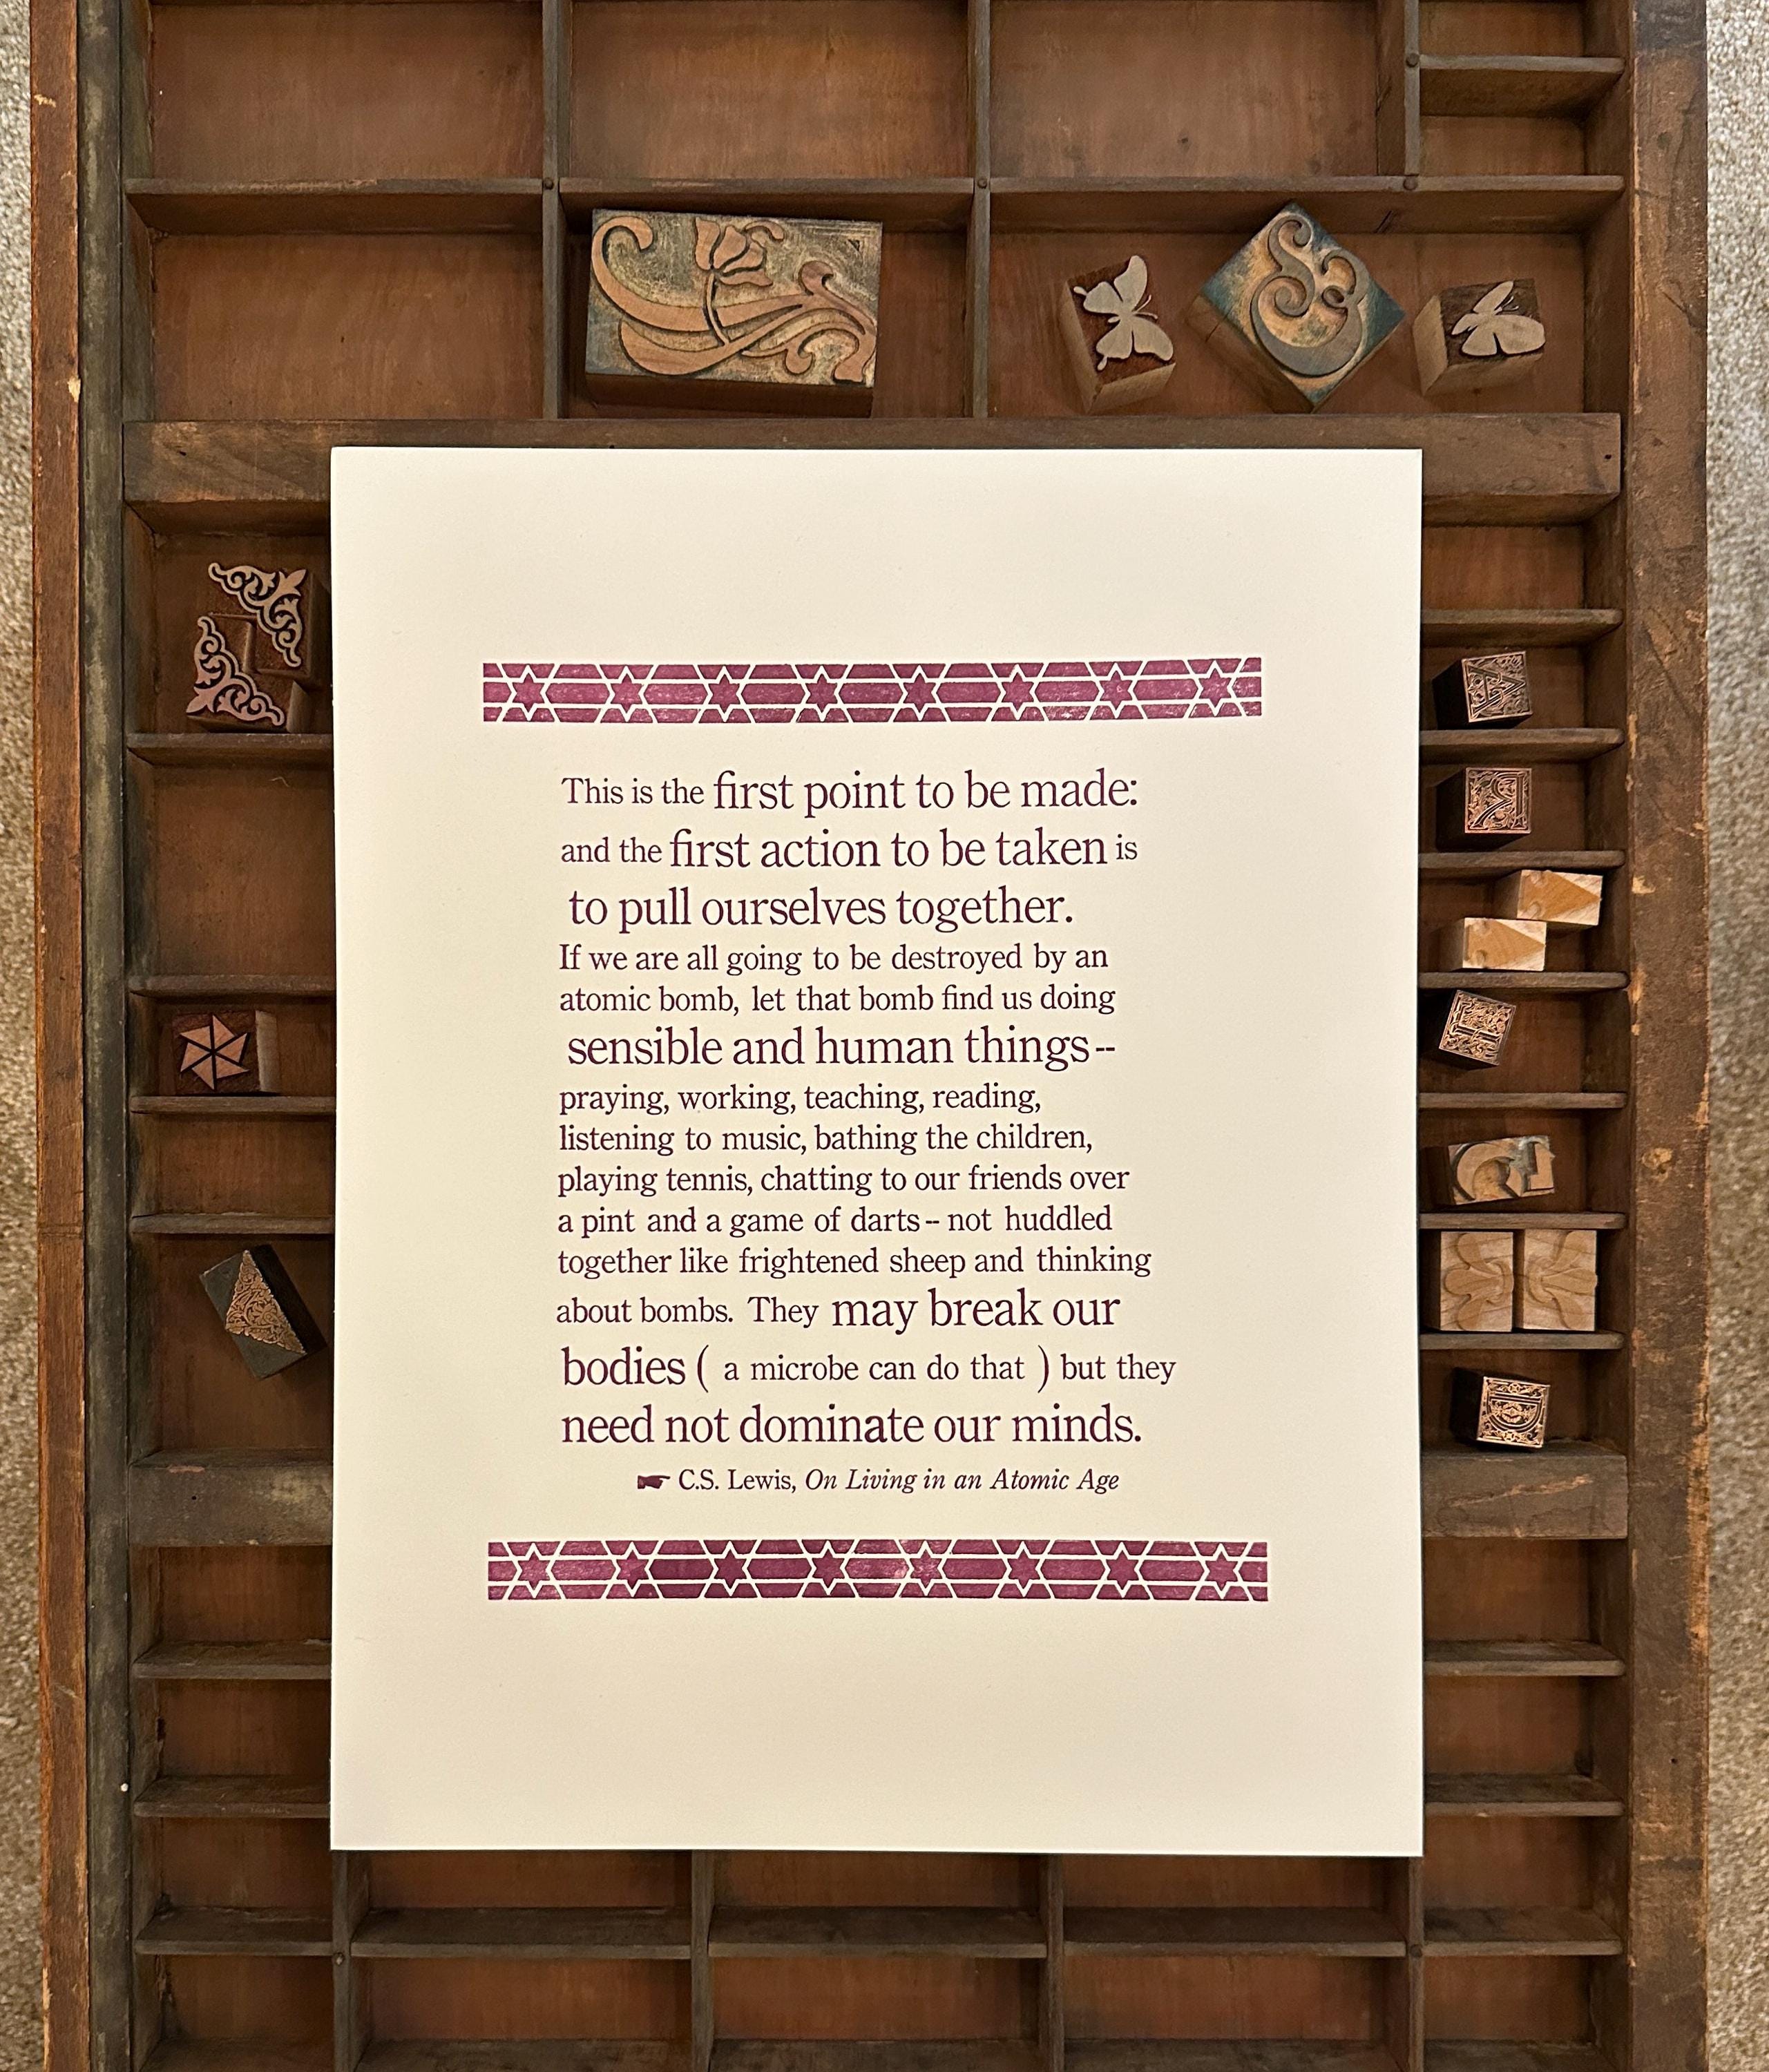 This is the first point to be made:
and the first action to be taken is
to pull ourselves together.
If we are all going to be destroyed by an
atomic bomb, let that bomb find us doing
sensible and human things--
praying, working, teaching, reading,
listening to music, bathing the children,
playing tennis, chatting to our friends over
a pint and a game of darts -- not huddled
together like frightened sheep and thinking
about bombs. They may break our
bodies ( a microbe can do that ) but they
need not dominate our minds.
☛ C.S. Lewis, On Living in an Atomic Age